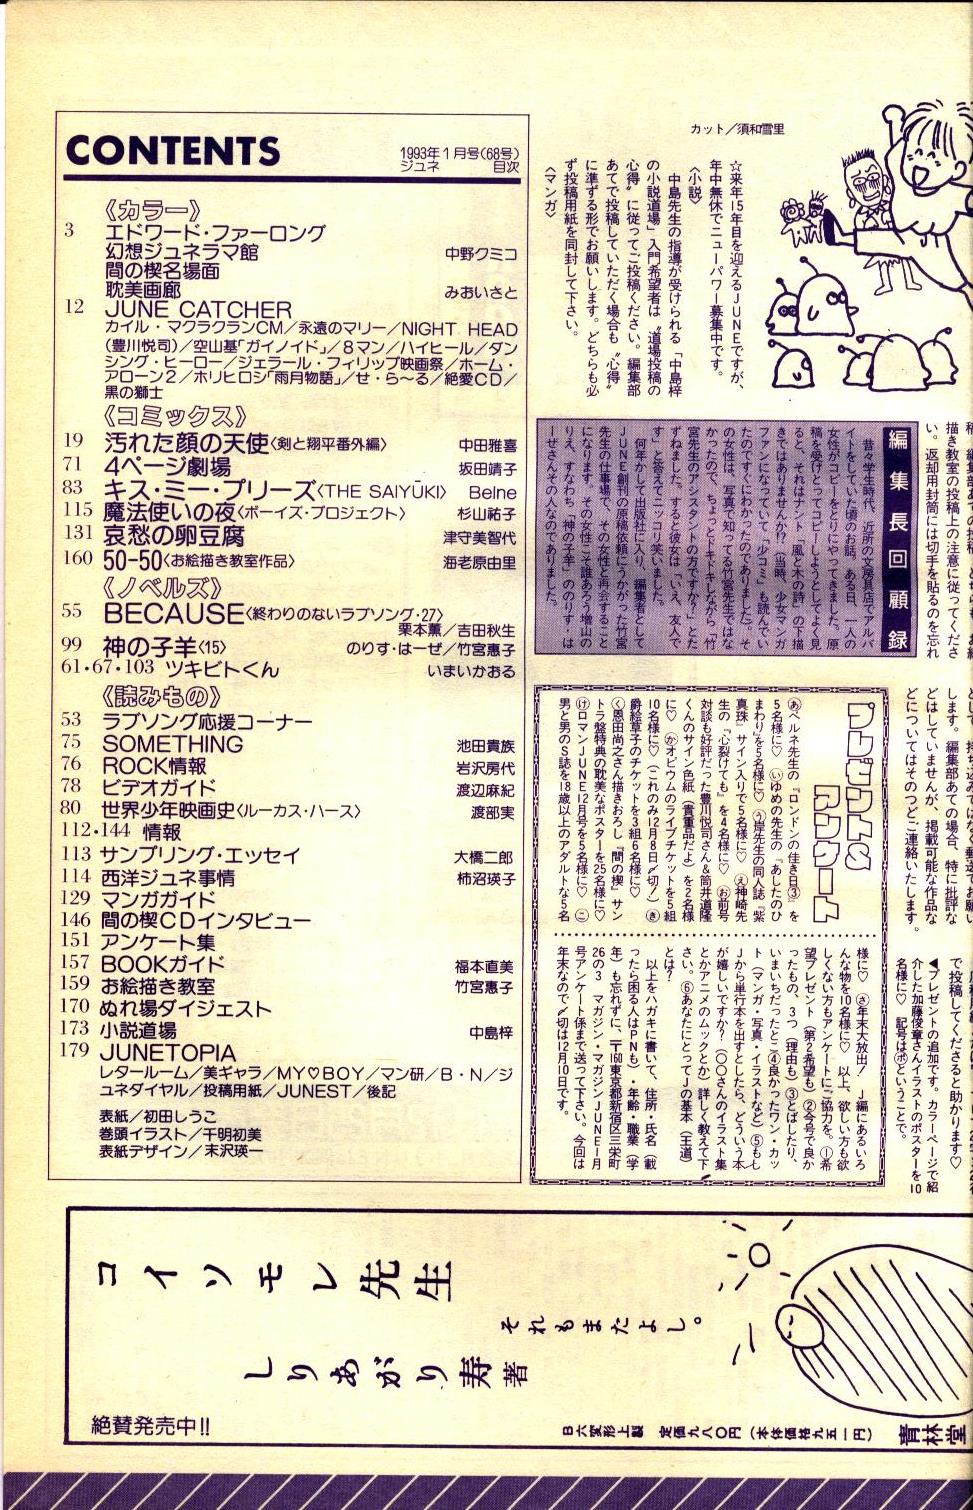 CONTENTS
1993年1月号(68号)
ジュネ 目次
《カラー》
3 エドワード・ファーロング
幻想ジュネラマ館 中野クミコ
間の楔名場面
耽美画廊 みおいさと
12 JUNE CATCHER
カイル・マクラクランCM／永遠のマリー／NIGHT HEAD
(豊川悦司)／空山基「ガイノイド」／8マン／ハイヒール／ダン
シング・ヒーロー／ジェラール・フィリップ映画祭／ホーム・
アローン2／ホリヒロシ「雨月物語」／せ・ら〜る／絶愛CD／
黒の獅士
《コミックス》
19 汚れた顔の天使〈剣と翔平番外編〉 中田雅喜
71 4ページ劇場 坂田靖子
83 キス・ミー・プリーズ〈THE SAIYŪKI〉 Belne
115 魔法使いの夜〈ボーイズ・プロジェクト〉 杉山祐子
131 哀愁の卵豆腐 津守美智代
160 50-50〈お絵描き教室作品〉 海老原由里
《ノベルズ》
55 BECAUSE〈終わりのないラブソング・27〉
栗本薫／吉田秋生
99 神の子羊〈15〉 のりす・はーぜ／竹宮惠子
61・67・103 ツキビトくん いまいかおる
《読みもの》
53 ラブソング応援コーナー
75 SOMETHING 池田貴族
76 ROCK情報 岩沢房代
78 ビデオガイド 渡辺麻紀
80 世界少年映画史〈ルーカス・ハース〉 渡部実
112・144 情報
113 サンプリング・エッセイ 大橋二郎
114 西洋ジュネ事情 柿沼瑛子
129 マンガガイド
146 間の楔CDインタビュー
151 アンケート集
157 BOOKガイド 福本直美
159 お絵描き教室 竹宮惠子
170 ぬれ場ダイジェスト
173 小説道場 中島梓
179 JUNETOPIA
レタールーム／美ギャラ／MY♡BOY／マン研／B・N／ジ
ュネダイヤル／投稿用紙／JUNEST／後記
表紙／初田しうこ
巻頭イラスト／千明初美
表紙デザイン／末沢瑛一
カット／須和雪里
☆来年15年目を迎えるJUNEですが、
年中無休でニューパワー募集中です。
〈小説〉
中島先生の指導が受けられる「中島梓
の小説道場」入門希望者は〝道場投稿の
心得〟に従ってご投稿ください。編集部
あてで投稿していただく場合も〝心得〟
に準ずる形でお願いします。どちらも必
ず投稿用紙を同封して下さい。
〈マンガ〉
き教室の投稿上の注意に従ってくださ
い。返却用封筒には切手を貼るのを忘れ
編集長回顧録
昔々学生時代、近所の文房具店でアルバ
イトをしていた頃のお話。ある日、一人の
女性がコピーをとりにやってきました。原
稿を受けとってコピーしようとしてよく見
ると、それはナント「風と木の詩」の下描
きではありませんか!?(当時、少女マンガ
ファンになっていて「少コミ」も読んでい
たのですぐにわかったのでありました)。そ
の女性は、写真で知ってる竹宮先生ではな
かったので、ちょっとドキドキしながら、「竹
宮先生のアシスタントの方ですか?」とた
ずねました。すると彼女は「いいえ、友人で
す」と答えてニッコリ笑いました。
何年かして出版社に入り、編集者として
JUNE創刊の原稿依頼にうかがった竹宮
先生の仕事場で、その女性と再会すること
になります。その女性こそ誰あろう増山の
りえ、すなわち「神の子羊」ののりす・は
ーぜさんその人なのでありました。
します。編集部あての場合、特に批評な
どはしていませんが、掲載可能な作品な
どについてはそのつどご連絡いたします。
で投稿してくださると助かります♡
◀プレゼントの追加です。カラーページで紹
介した加藤俊章さんイラストのポスターを10
名様に♡ 記号は㋭ということで。
プレゼント&アンケート
㋐ベルネ先生の『ロンドンの佳き日③』を
5名様に♡ ㋑ゆめの先生の『あしたのひ
まわり』を5名様に♡ ㋒岸先生の同人誌『紫
真珠』サイン入りで5名様に♡ ㋓神崎先
生の『心裂けても』を4名様に♡ ㋔前号
対談も好評だった豊川悦司さん&筒井道隆
くんのサイン色紙(貴重品だよ)を2名様
に♡ ㋕オピウムのライブチケットを5組
10名様に♡(これのみ12月8日〆切!) ㋖
爵絵草子のチケットを3組6名様に♡
㋗恩田尚之さん描きおろし『間の楔』サン
トラ盤特典の耽美なポスターを25名様に♡
㋘ロマンJUNE12月号を5名様に♡ ㋙
男と男のS誌を18歳以上のアダルトな5名
様に♡ ㋚年末大放出! J編にあるいろ
んな物を10名様に♡ 以上、欲しい方も欲
しくない方もアンケートにご協力を。①希
望プレゼント(第2希望も)②今号で良か
ったもの、3つ(理由も)③とばしたり、
いまいちだったとこ④良かったワン・カッ
ト(マンガ・写真・イラストなど)⑤もし
Jから単行本を出すとしたら、どういう本
が嬉しいですか?(○○さんのイラスト集
とかアニメのムックとか)詳しく教えて下
さい。⑥あなたにとってJの基本(王道)
とは?
以上をハガキに書いて、住所・氏名(載
ったら困る人はPNも)・年齢・職業(学
年)も忘れずに、〒160東京都新宿区三栄町
26の3 マガジン・マガジンJUNE1月
号アンケート係まで送って下さい。今回は
年末なので〆切は12月10日です。
コイソモレ先生
それもまたよし。
しりあがり寿 著
絶賛発売中!!
B六変形上製 定価九八〇円(本体価格九五一円)
青林堂